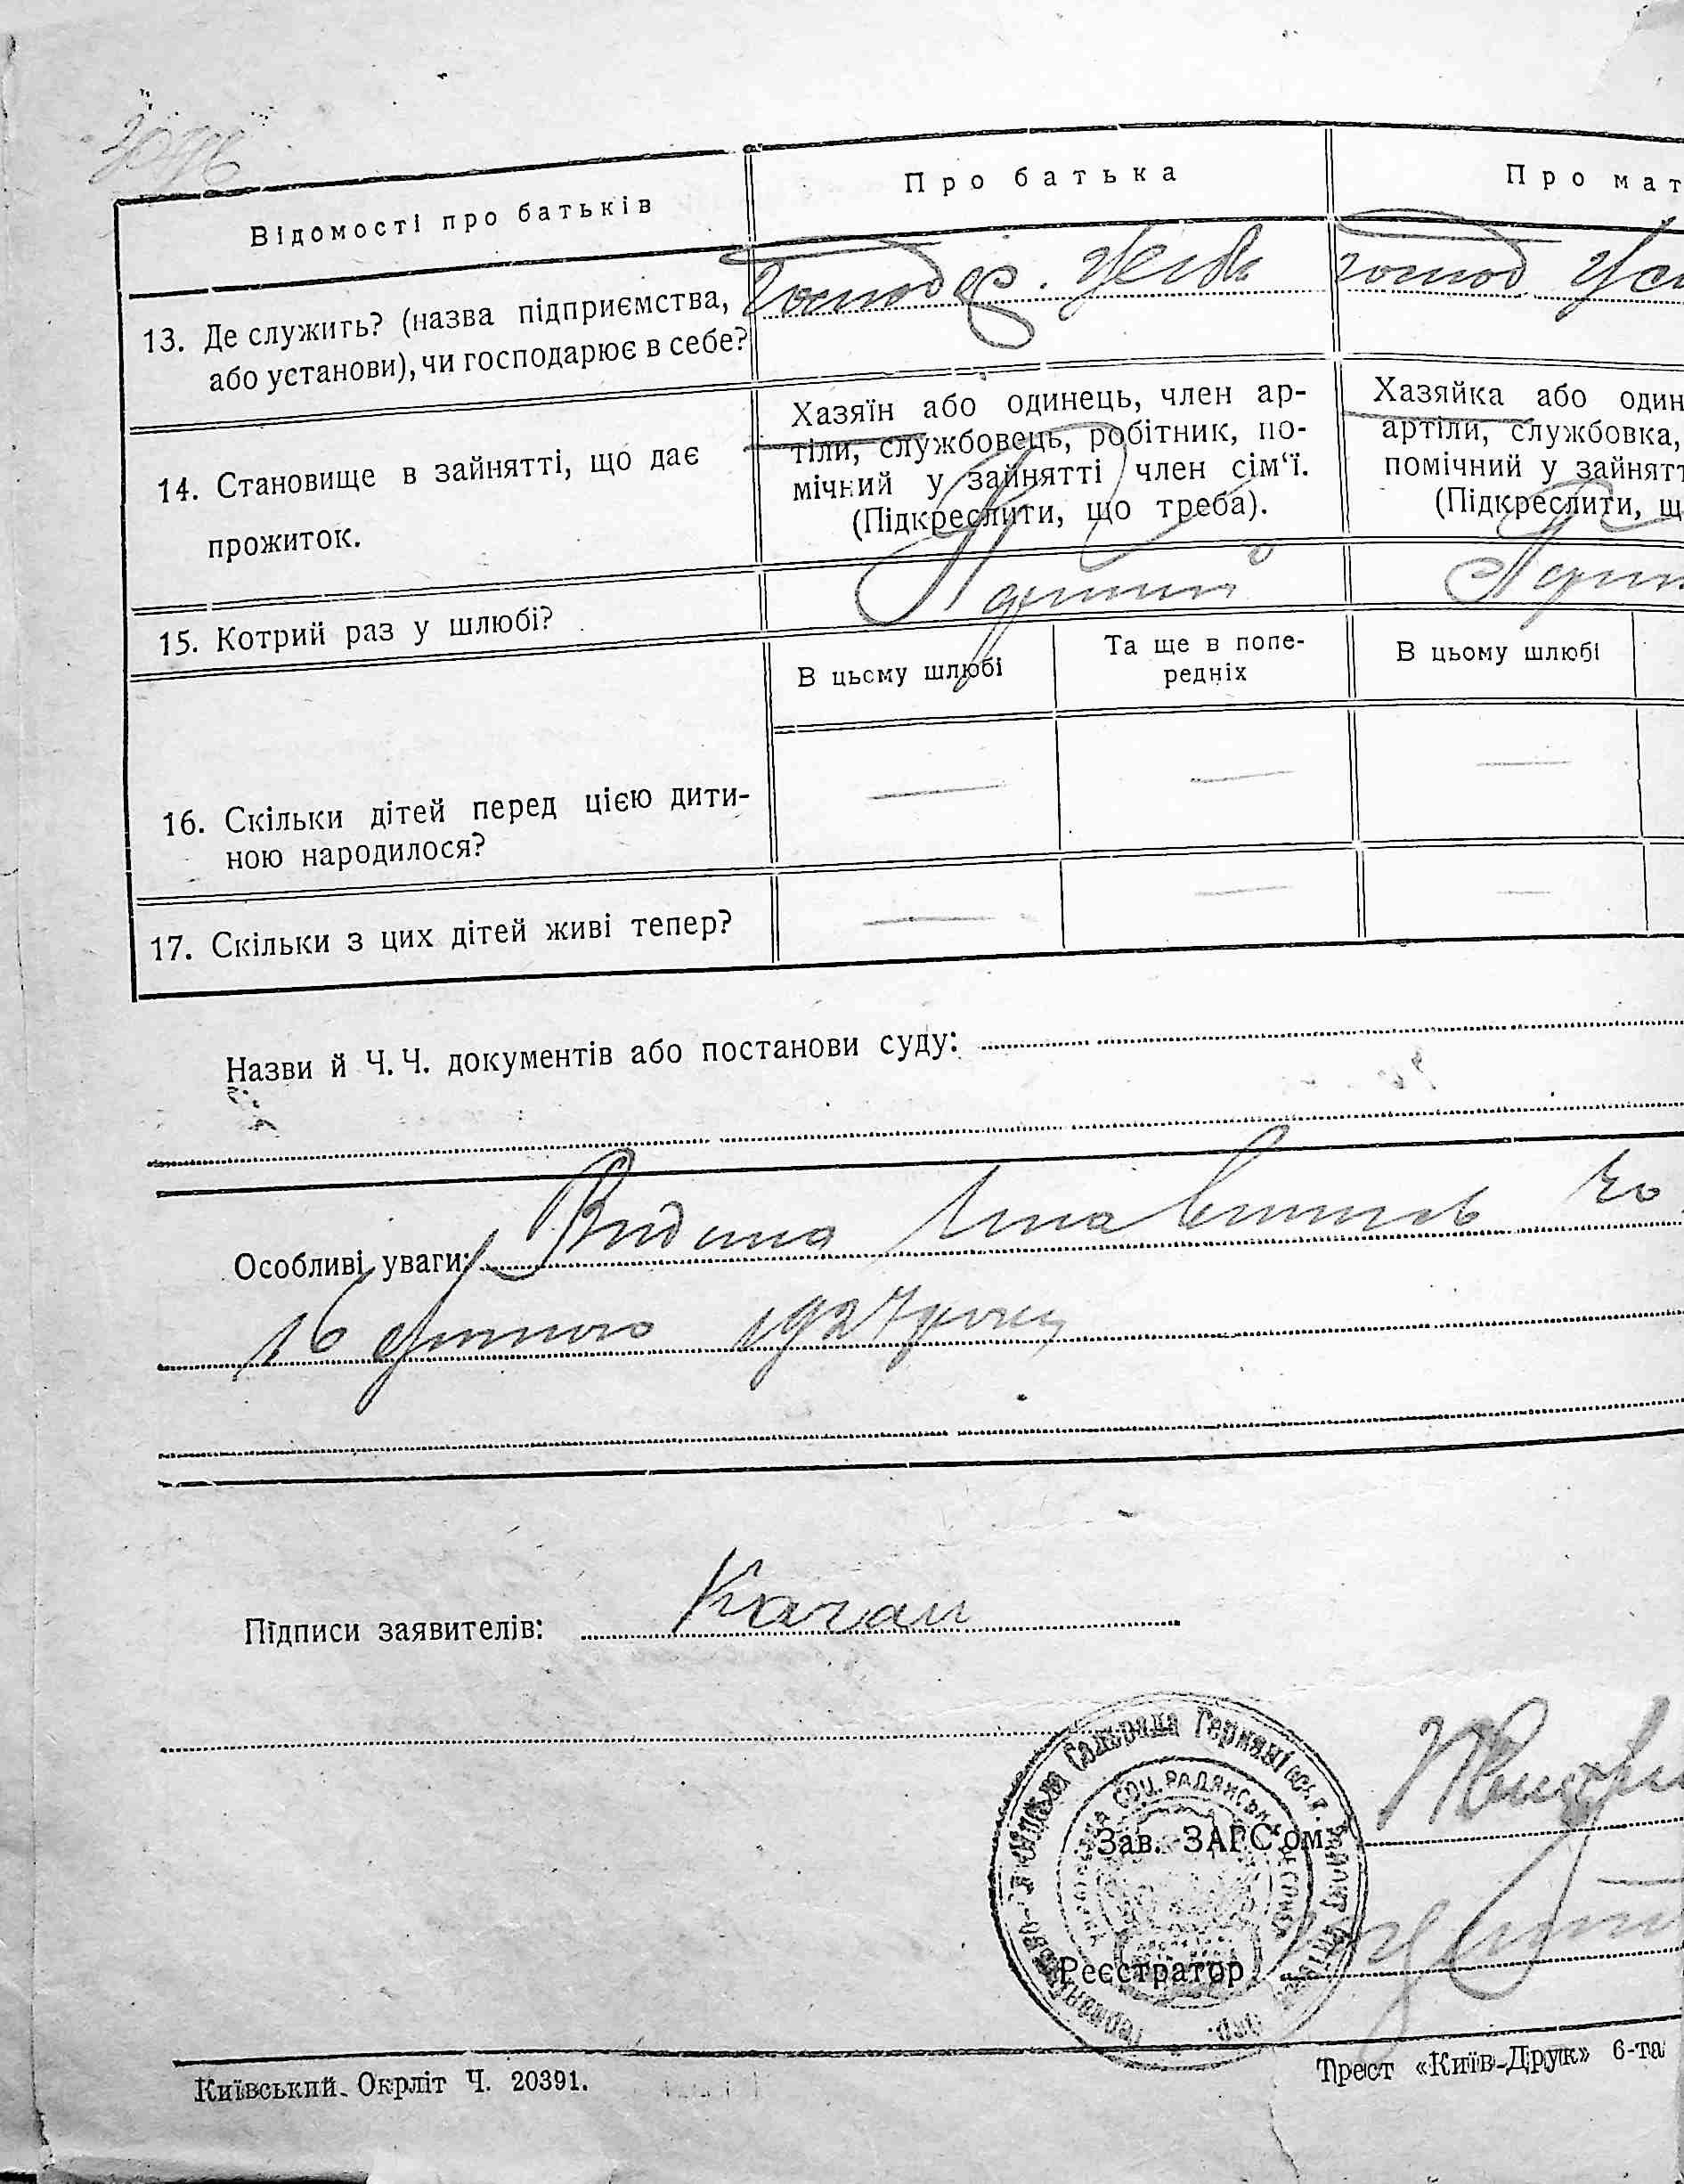 Відомості про батьків
Про батька
Про мат
13. Де служить? (назва підприємства,
або установи), чи господарює в себе?
Господар. у себе
господ. у се
14. Становище в зайнятті, що дає
прожиток.
Хазяїн або одинець, член ар-
тіли, службовець, робітник, по-
мічний у зайнятті член сім‘ї.
(Підкреслити, що треба).
Хазяйка або один
артіли, службовка,
помічний у зайнятт
(Підкреслити, щ
15. Котрий раз у шлюбі?
Перший
Перш
В цьому шлюбі
Та ще в попе-
редніх
В цьому шлюбі
16. Скільки дітей перед цією дити-
ною народилося?
17. Скільки з цих дітей живі тепер?
Назви й Ч. Ч. документів або постанови суду:
Особливі уваги: Видана
16 лютого 1927 року
Підписи заявителів: Каган
Сельрада
Соц. Радянська
Зав. ЗАГС‘ом
Реєстратор
Київський Окрліт Ч. 20391.
Трест «Київ-Друк» 6-та